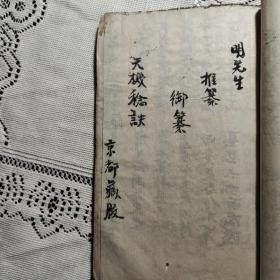 明先生
推纂
御纂
天機秘訣
京都藏版